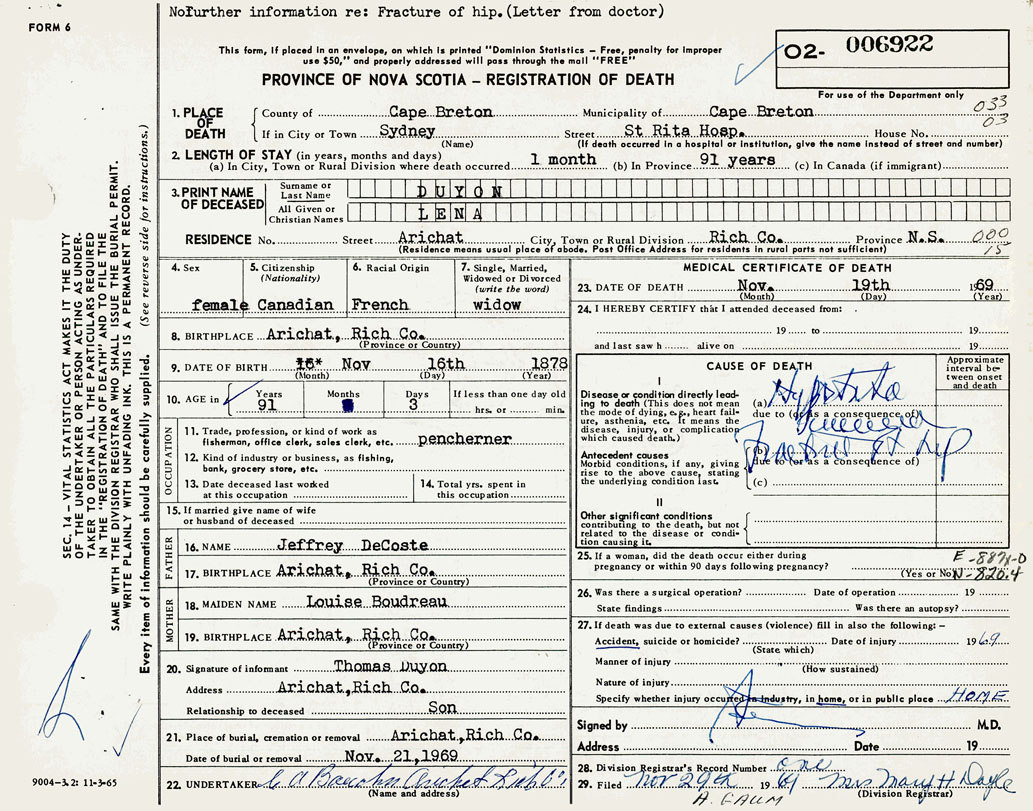 No further information re: Fracture of hip.(Letter from doctor)
FORM 6
This form, if placed in an envelope, on which is printed "Dominion Statistics – Free, penalty for improper
use $50," and properly addressed will pass through the mail "FREE"
02- 006922
PROVINCE OF NOVA SCOTIA – REGISTRATION OF DEATH
For use of the Department only
1. PLACE OF DEATH
County of Cape Breton Municipality of Cape Breton 033
03
If in City or Town Sydney Street St Rita Hosp. House No.
(Name) (If death occurred in a hospital or institution, give the name instead of street and number)
2. LENGTH OF STAY (in years, months and days)
(a) In City, Town or Rural Division where death occurred 1 month (b) In Province 91 years (c) In Canada (if immigrant)
3. PRINT NAME OF DECEASED
Surname or Last Name DUYON
All Given or Christian Names LENA
RESIDENCE No. Street Arichat City, Town or Rural Division Rich Co. Province N.S. 000
15
(Residence means usual place of abode. Post Office Address for residents in rural parts not sufficient)
4. Sex
female
5. Citizenship
(Nationality)
Canadian
6. Racial Origin
French
7. Single, Married,
Widowed or Divorced
(write the word)
widow
8. BIRTHPLACE Arichat, Rich Co.
(Province or Country)
9. DATE OF BIRTH Nov 16th 1878
(Month) (Day) (Year)
10. AGE in
Years Months Days If less than one day old
91 3 hrs. or min.
OCCUPATION
11. Trade, profession, or kind of work as
fisherman, office clerk, sales clerk, etc. pencherner
12. Kind of industry or business, as fishing,
bank, grocery store, etc.
13. Date deceased last worked
at this occupation
14. Total yrs. spent in
this occupation
15. If married give name of wife
or husband of deceased
FATHER
16. NAME Jeffrey DeCoste
17. BIRTHPLACE Arichat, Rich Co.
(Province or Country)
MOTHER
18. MAIDEN NAME Louise Boudreau
19. BIRTHPLACE Arichat, Rich Co.
(Province or Country)
20. Signature of informant Thomas Duyon
Address Arichat,Rich Co.
Relationship to deceased Son
21. Place of burial, cremation or removal Arichat,Rich Co.
Date of burial or removal Nov. 21,1969
22. UNDERTAKER Arichat
(Name and address)
MEDICAL CERTIFICATE OF DEATH
23. DATE OF DEATH Nov. 19th 1969
(Month) (Day) (Year)
24. I HEREBY CERTIFY that I attended deceased from:
19 to 19
and last saw h alive on 19
CAUSE OF DEATH
Approximate
interval be-
tween onset
and death
I
Disease or condition directly lead-
ing to death (This does not mean
the mode of dying, e.g., heart fail-
ure, asthenia, etc. It means the
disease, injury, or complication
which caused death.)
(a)
due to (or as a consequence of)
Antecedent causes
Morbid conditions, if any, giving
rise to the above cause, stating
the underlying condition last.
(b) Fracture of hip
due to (or as a consequence of)
(c)
II
Other significant conditions
contributing to the death, but not
related to the disease or condi-
tion causing it.
25. If a woman, did the death occur either during
pregnancy or within 90 days following pregnancy?
(Yes or No)
E-887X-0
N-820.4
26. Was there a surgical operation? Date of operation 19
State findings Was there an autopsy?
27. If death was due to external causes (violence) fill in also the following: –
Accident, suicide or homicide? Date of injury 1969
(State which)
Manner of injury
(How sustained)
Nature of injury
Specify whether injury occurred in industry, in home, or in public place HOME
Signed by M.D.
Address Date 19
28. Division Registrar's Record Number one
29. Filed Nov 29th 1969 Mrs Mary H Doyle
(Division Registrar)
A. GAUM
SEC. 14 – VITAL STATISTICS ACT MAKES IT THE DUTY
OF THE UNDERTAKER OR PERSON ACTING AS UNDER-
TAKER TO OBTAIN ALL THE PARTICULARS REQUIRED
IN THE "REGISTRATION OF DEATH" AND TO FILE THE
SAME WITH THE DIVISION REGISTRAR WHO SHALL ISSUE THE BURIAL PERMIT.
WRITE PLAINLY WITH UNFADING INK. THIS IS A PERMANENT RECORD.
Every item of information should be carefully supplied. (See reverse side for instructions.)
9004-3.2: 11-3-65